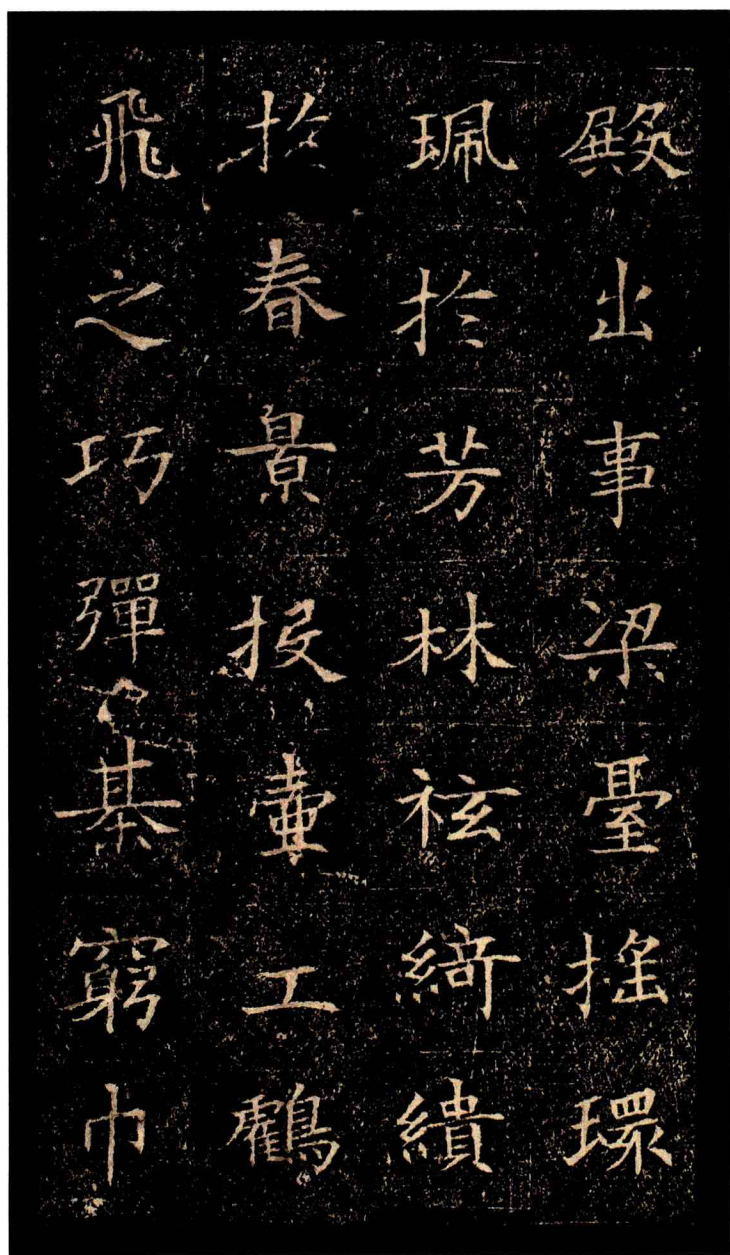 殿出事梁臺揺環
珮於芳林袨綺繢
於春景投壷工鸖
飛之巧彈棊窮巾